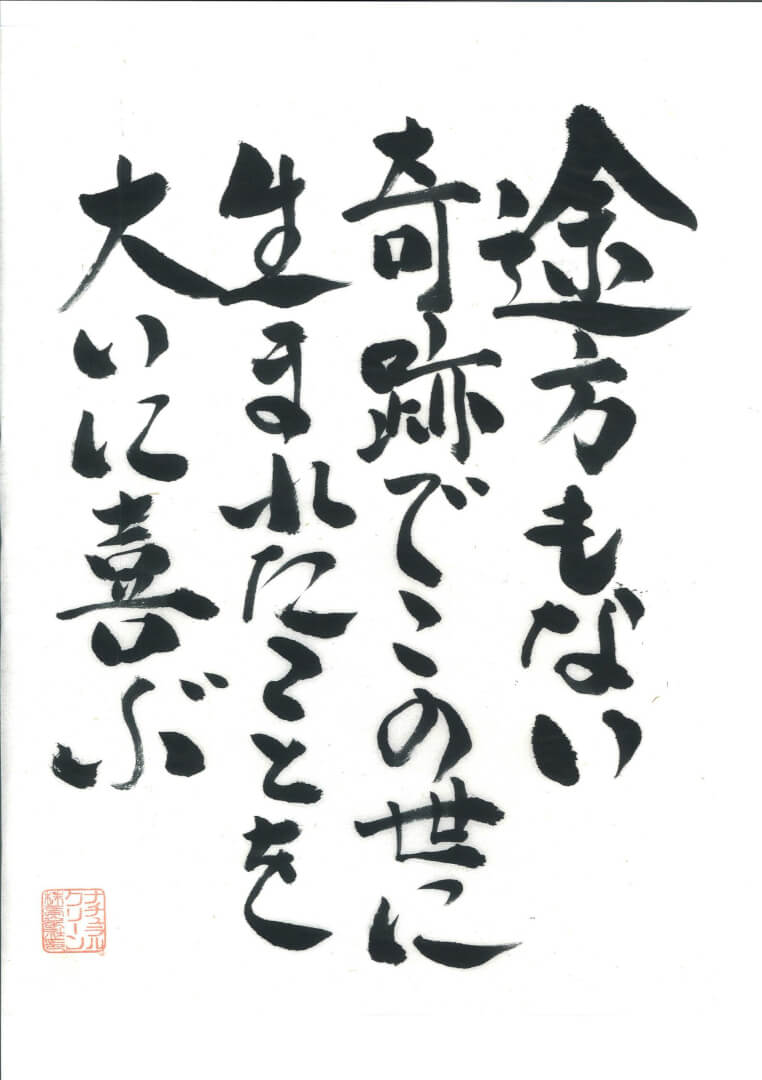 途方もない
奇跡でこの世に
生まれたことを
大いに喜ぶ
ナチュラル
クリーン
株式会社